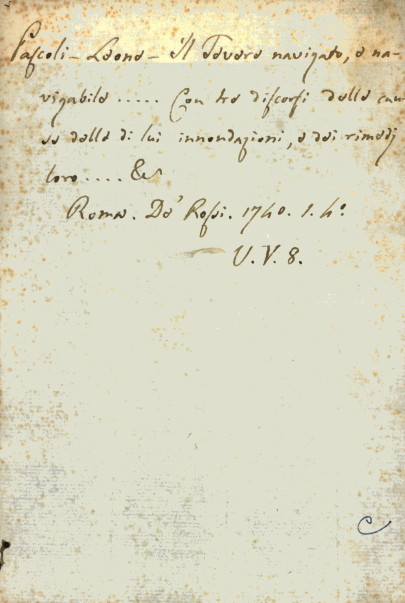 Pascoli - Leone - Il Tevere navigato, e na-
vigabile ..... Con tre discorsi delle cau-
se delle di lui innondazioni, e dei rimedj
loro .... &c
Roma. De' Rossi. 1740. 1. 4º.
U. V. 8.
C